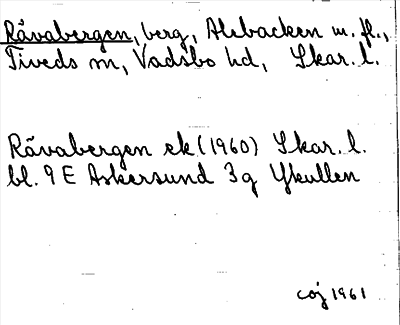 Rävabergen, berg, Alsbacken m. fl.,
Tiveds sn, Vadsbo hd, Skar. l.
Rävabergen ek (1960) Skar. l.
bl. 9 E Askersund 3 g Ykullen
coj 1961